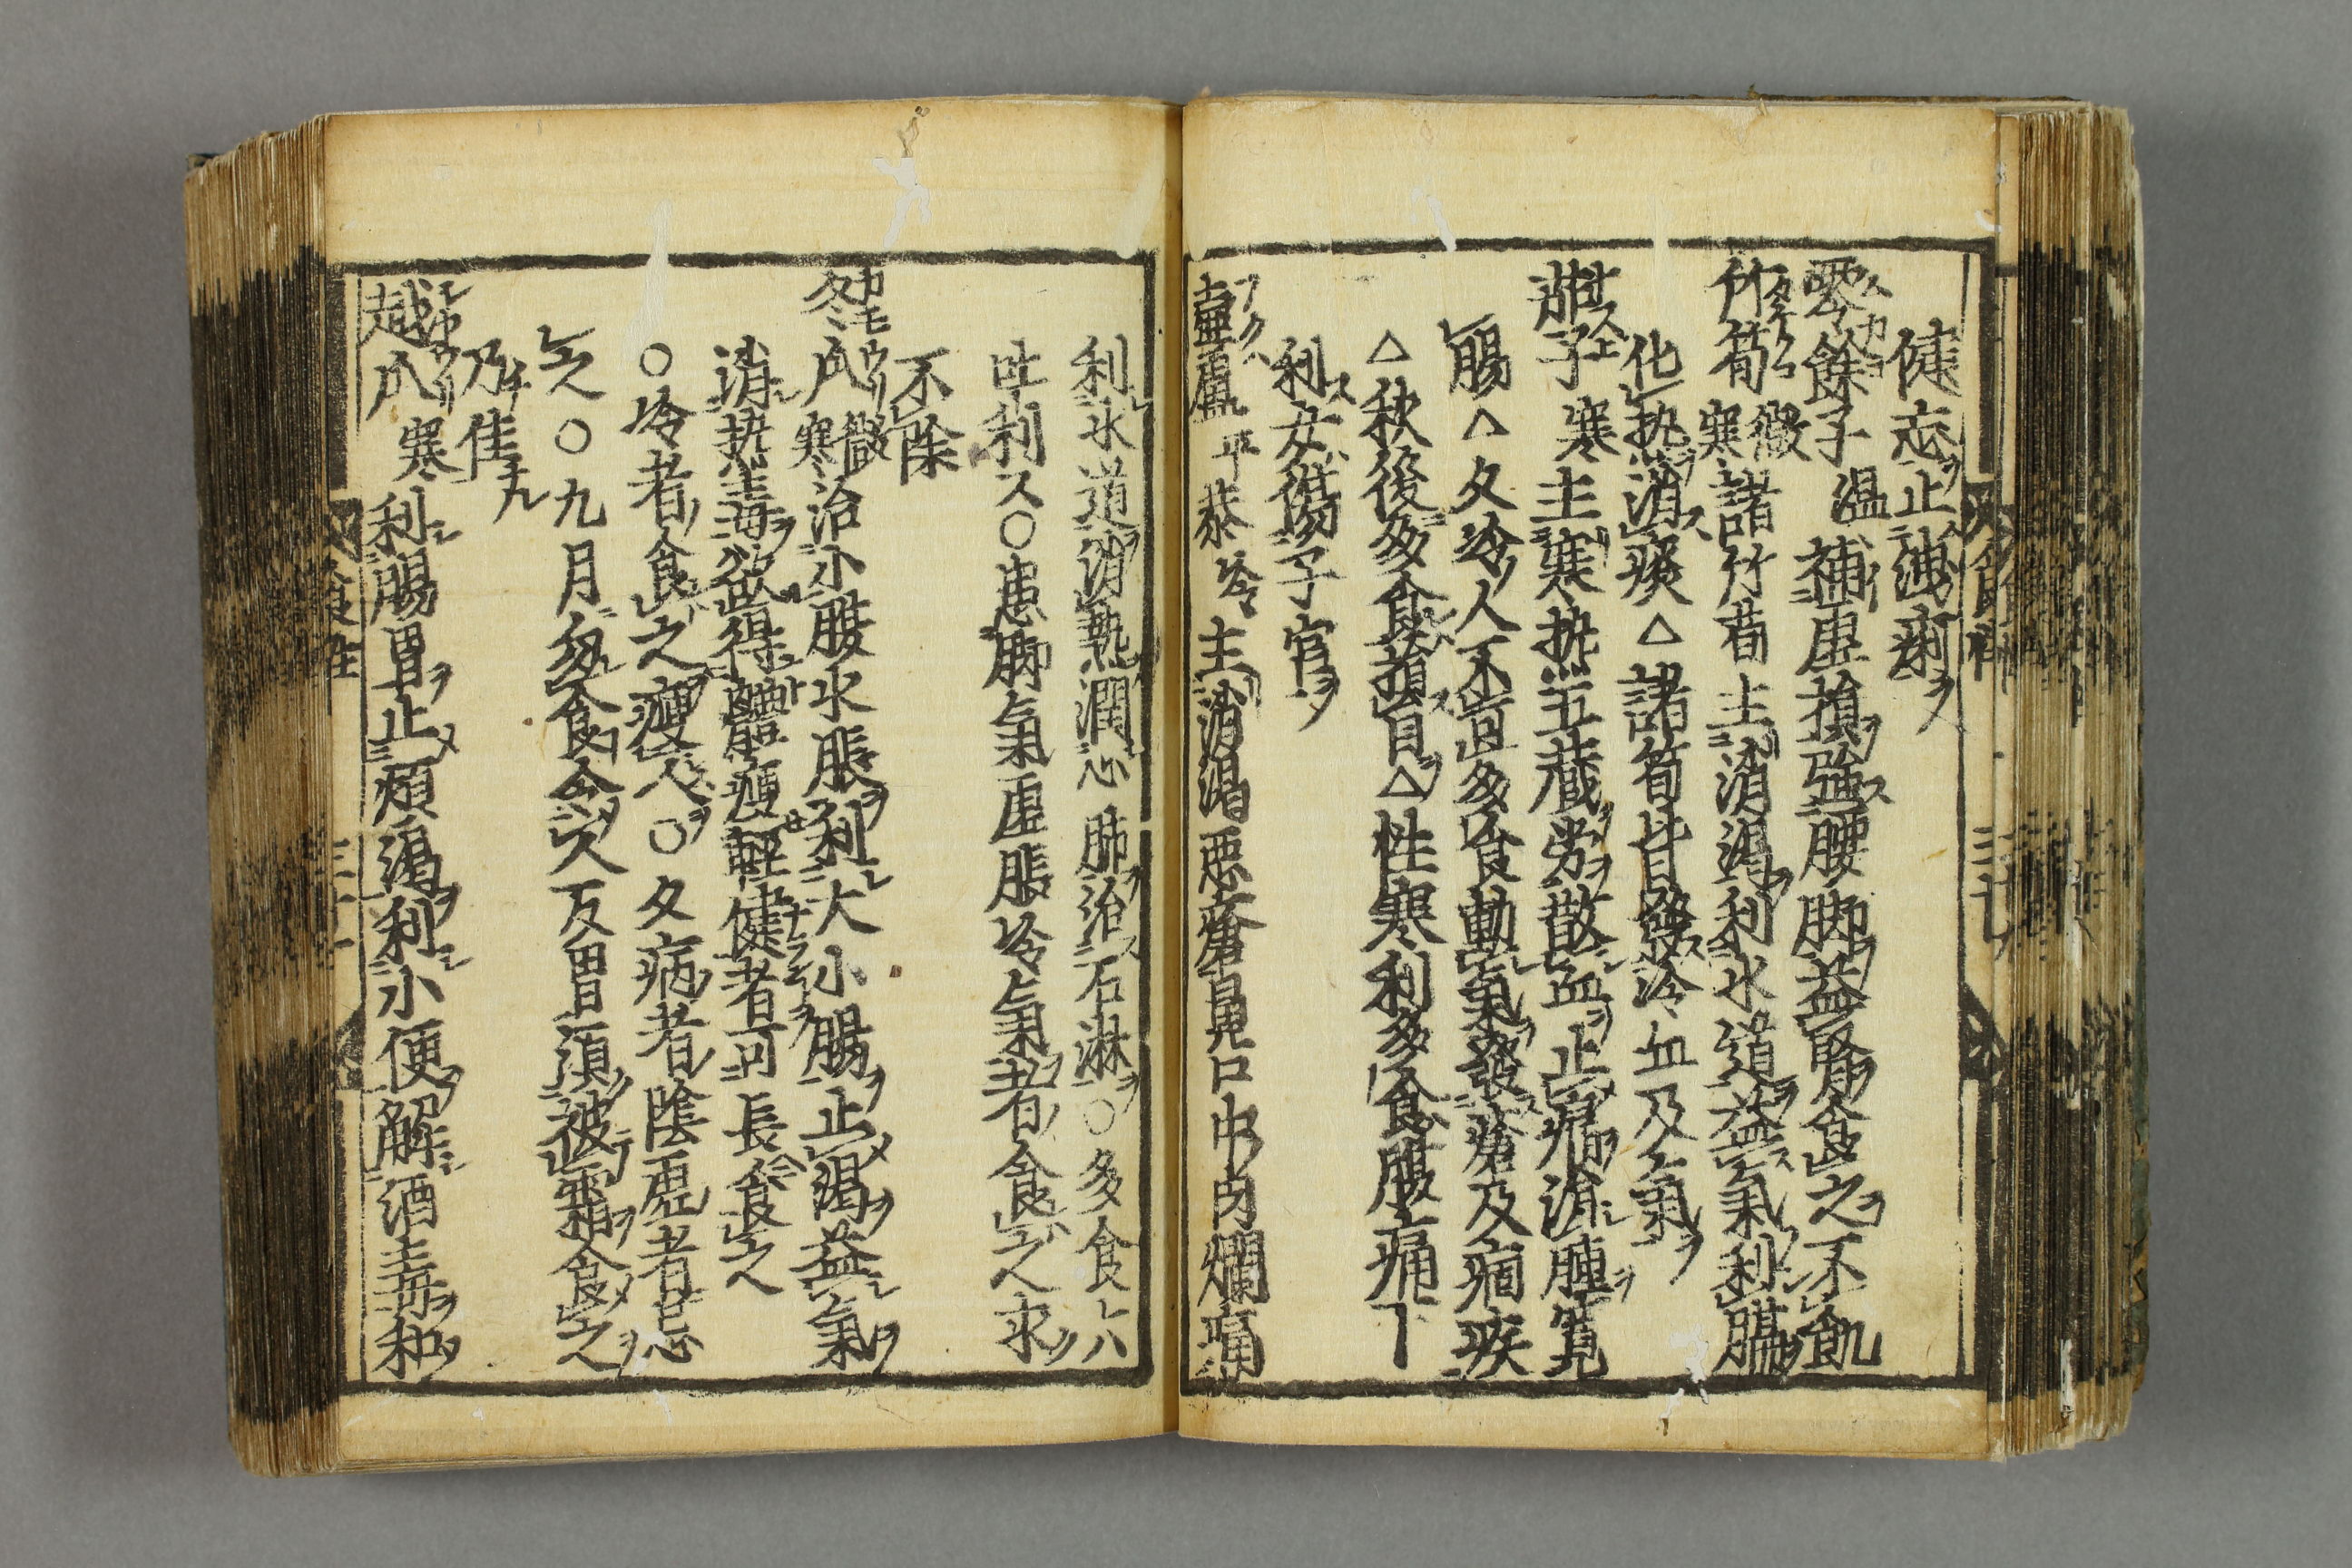 健忘止洩痢ヲ
零餘子 温 補虛損強腰脚益腎食之不飢
竹筍 微寒 諸竹筍主消渴利水道益氣利膈
化熱消痰△諸筍皆發冷血及氣ヲ
茄子 寒 主寒熱五藏労散血止痛消腫寬
腸△久冷人不可多食動氣發瘡及痼疾
△秋後多食損目△性寒利多食腹痛下
利女傷子宮ヲ
壺盧 平 恭冷 主消渴惡瘡鼻口中肉爛痛
利水道消熱潤心肺治石淋○多食ハ
吐利ス○患脚氣虛脹冷氣者食之永
不除
冬瓜 微寒 治小腹水脹利大小腸止渴益氣
消熱毒欲得體瘦輕健者可長食之
○冷者食之瘦人○久病者陰虛者忌
之○九月勿食令人反胃須被霜食之
乃佳
越瓜 寒 利腸胃止煩渴利小便解酒毒和